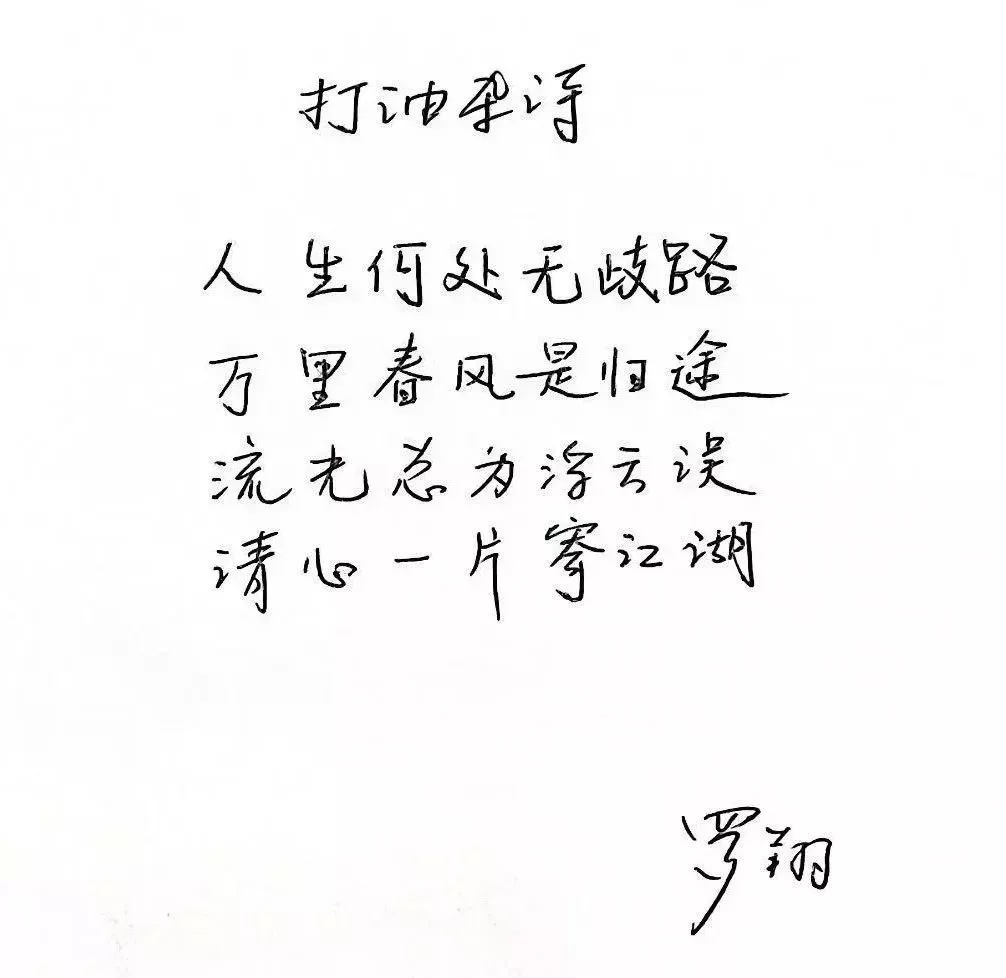 打油杂诗
人生何处无歧路
万里春风是归途
流光总为浮云误
清心一片寄江湖
罗翔